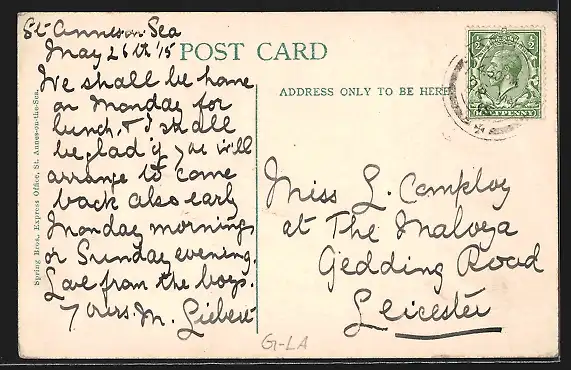 St-Annes-on-Sea
May 26th '15
POST CARD
We shall be home
on Monday for
lunch, & I shall
be glad if you will
arrange to come
back also early
Monday morning
or Sunday evening.
Love from the boys.
Yours. M. Liebert
ADDRESS ONLY TO BE HERE
HALFPENNY
Miss L.
at The
Gedding Road
Leicester
Spring Bros., Express Office, St. Annes-on-the-Sea.
G-LA